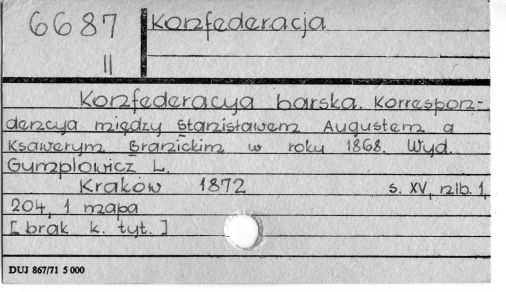 6687 Konfederacja
II
Konfederacya barska. Korrespon-
dencya między Stanisławem Augustem a
Ksawerym Branickim w roku 1868. Wyd.
Gumplowicz L.
Kraków 1872 s. XV, nlb. 1,
204, 1 mapa
[brak k. tyt.]
DUJ 867/71 5 000